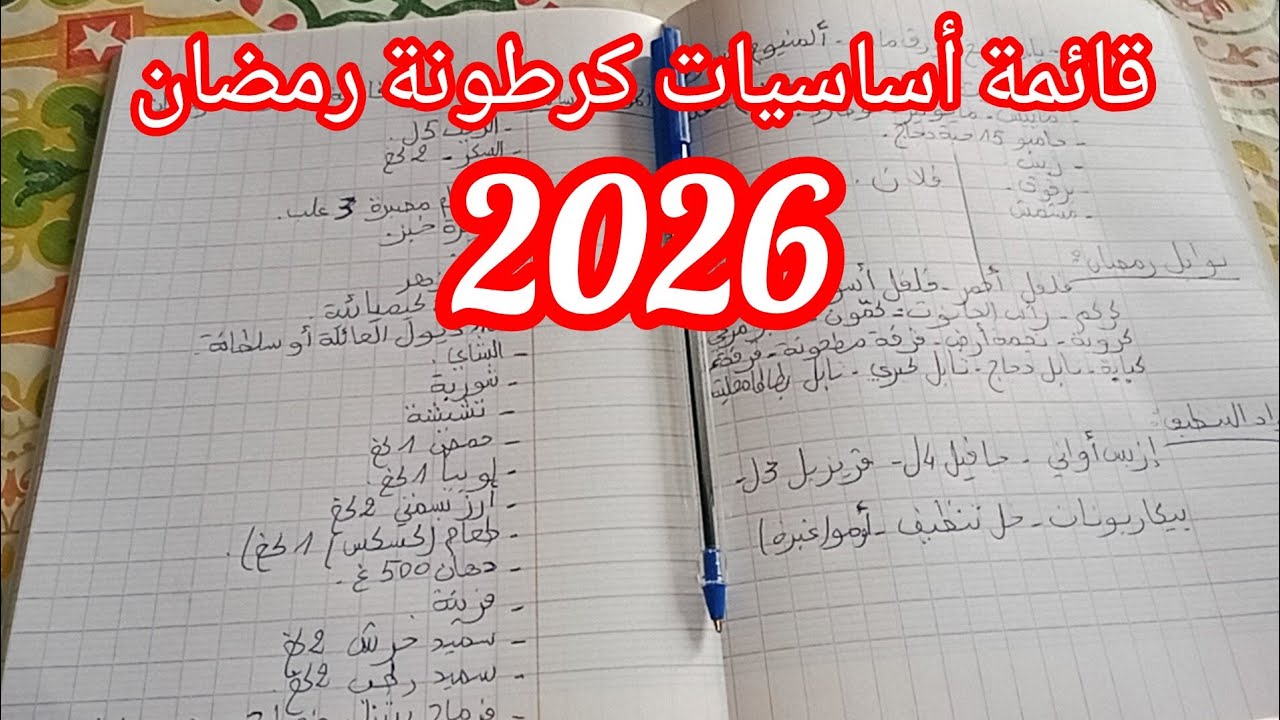 قائمة أساسيات كرطونة رمضان
2026
- الزيت 5ل.
- السكر - 2 كغ
مصبرة 3 علب.
خبز
زهر
كيميائية.
كحول العائلة أو سلطانة.
- الشاي.
- شوربة
- تشيشة
- حمص 1 كغ
- لوبيا 1 كغ
- أرز بسمتي 2 كغ
- طعام (كسكس) 1 كغ).
- دهان 500 غ.
- فرينة.
- سميد خرش 2 كغ
- سميد رطب 2 كغ.
- فرماج
ألمنيوم
- جامبو 15 حبة دجاج.
- زبيب
- برقوق.
- مشمش
فلان.
توابل رمضان:
فلفل أحمر - فلفل أسود
كركم - راس الحانوت - كمون
كروية - قرفة مطحونة - قرفة
كبابة - تابل دجاج - تابل كمري - تابل
إزيس أواني - جافيل 4ل - فريزيل 3ل -
بيكاربونات - خل تنظيف - أومو (غبرة)